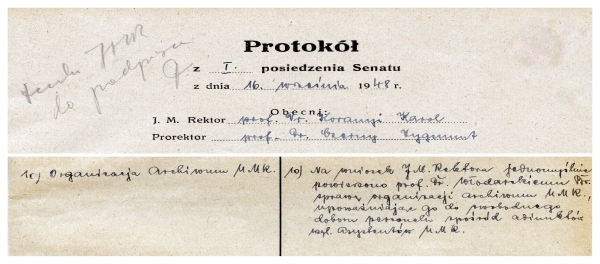 teczka JMR
do podpisu
Protokół
z I. posiedzenia Senatu
z dnia 16. września 1948 r.
Obecni:
J. M. Rektor prof. Dr. Koranyi Karol
Prorektor prof. Dr. Czerny Zygmunt
10) Organizacja Archiwum UMK.
10) Na wniosek J.M. Rektora jednomyślnie
powierzono prof. Dr. Włodarskiemu Br.
sprawę organizacji Archiwum UMK.,
upoważniając go do swobodnego
doboru personelu spośród adiunktów
wzgl. Asystentów UMK.